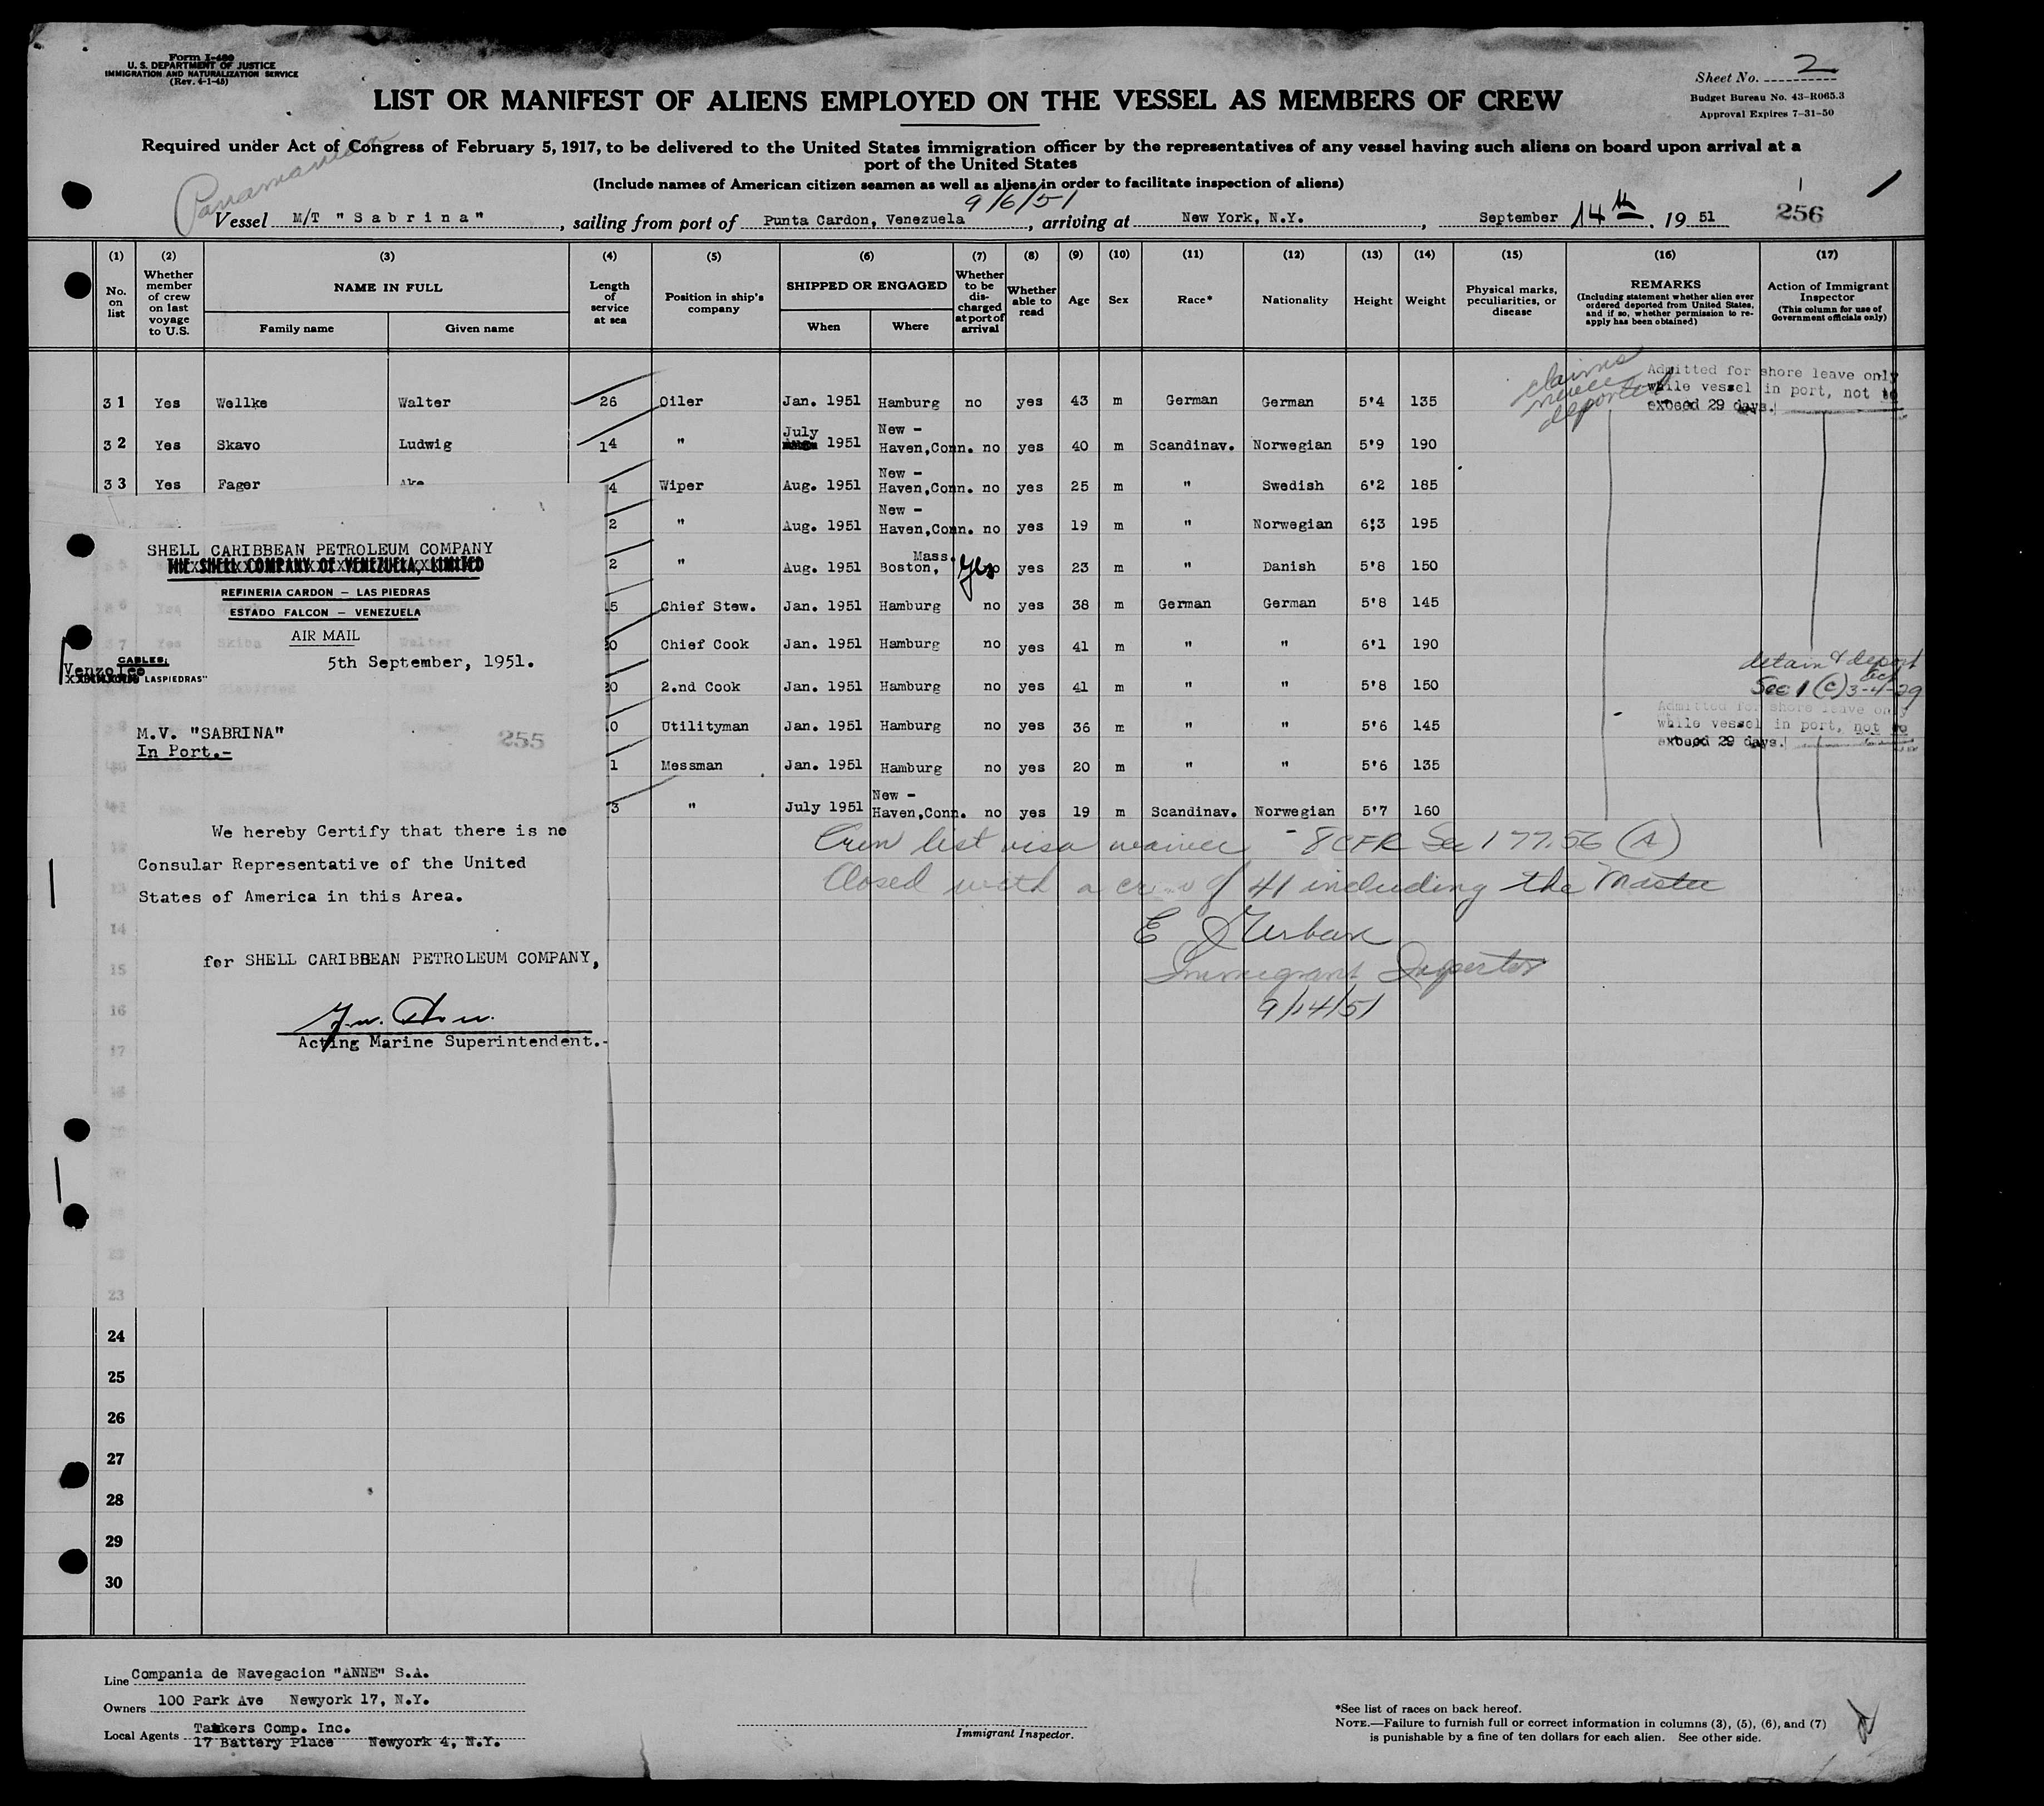 Form I-480
U. S. DEPARTMENT OF JUSTICE
IMMIGRATION AND NATURALIZATION SERVICE
(Rev. 4-1-45)
Sheet No. 2
Budget Bureau No. 43-R065.3
Approval Expires 7-31-50
LIST OR MANIFEST OF ALIENS EMPLOYED ON THE VESSEL AS MEMBERS OF CREW
Required under Act of Congress of February 5, 1917, to be delivered to the United States immigration officer by the representatives of any vessel having such aliens on board upon arrival at a
port of the United States
(Include names of American citizen seamen as well as aliens in order to facilitate inspection of aliens)
Panamanian
9/6/51
Vessel M/T "Sabrina", sailing from port of Punta Cardon, Venezuela, arriving at New York, N.Y., September 14th, 1951
256
(1) No. on list
(2) Whether member of crew on last voyage to U.S.
(3) NAME IN FULL Family name Given name
(4) Length of service at sea
(5) Position in ship's company
(6) SHIPPED OR ENGAGED When Where
(7) Whether to be discharged at port of arrival
(8) Whether able to read
(9) Age
(10) Sex
(11) Race*
(12) Nationality
(13) Height
(14) Weight
(15) Physical marks, peculiarities, or disease
(16) REMARKS (Including statement whether alien ever ordered deported from United States, and if so, whether permission to re-apply has been obtained)
(17) Action of Immigrant Inspector (This column for use of Government officials only)
claims never deported
Admitted for shore leave only
while vessel in port, not to
exceed 29 days.
31 Yes Wellke Walter 26 Oiler Jan. 1951 Hamburg no yes 43 m German German 5'4 135
32 Yes Skavo Ludwig 14 " July 1951 New - Haven,Conn. no yes 40 m Scandinav. Norwegian 5'9 190
33 Yes Fager Ake 4 Wiper Aug. 1951 New - Haven,Conn. no yes 25 m " Swedish 6'2 185
2 " Aug. 1951 New - Haven,Conn. no yes 19 m " Norwegian 6'3 195
2 " Aug. 1951 Boston, Mass. Yes yes 23 m " Danish 5'8 150
5 Chief Stew. Jan. 1951 Hamburg no yes 38 m German German 5'8 145
0 Chief Cook Jan. 1951 Hamburg no yes 41 m " " 6'1 190
20 2.nd Cook Jan. 1951 Hamburg no yes 41 m " " 5'8 150
0 Utilityman Jan. 1951 Hamburg no yes 36 m " " 5'6 145
1 Messman Jan. 1951 Hamburg no yes 20 m " " 5'6 135
3 " July 1951 New - Haven,Conn. no yes 19 m Scandinav. Norwegian 5'7 160
detain & deport
Sec 1 (c) Act 3-4-29
Admitted for shore leave only
while vessel in port, not to
exceed 29 days.
Crew list visa waived - 8 CFR Sec 177.56 (A)
Closed with a crew of 41 including the Master
Immigrant Inspector
9/14/51
SHELL CARIBBEAN PETROLEUM COMPANY
THE SHELL COMPANY OF VENEZUELA, LIMITED
REFINERIA CARDON — LAS PIEDRAS
ESTADO FALCON — VENEZUELA
AIR MAIL
CABLES:
LASPIEDRAS"
5th September, 1951.
M.V. "SABRINA"
In Port.-
255
We hereby Certify that there is no
Consular Representative of the United
States of America in this Area.
for SHELL CARIBBEAN PETROLEUM COMPANY,
Acting Marine Superintendent.-
14
15
16
17
23
24
25
26
27
28
29
30
Line Compania de Navegacion "ANNE" S.A.
Owners 100 Park Ave Newyork 17, N.Y.
Local Agents Tankers Comp. Inc.
17 Battery Place Newyork 4, N.Y.
Immigrant Inspector.
*See list of races on back hereof.
NOTE.—Failure to furnish full or correct information in columns (3), (5), (6), and (7)
is punishable by a fine of ten dollars for each alien. See other side.